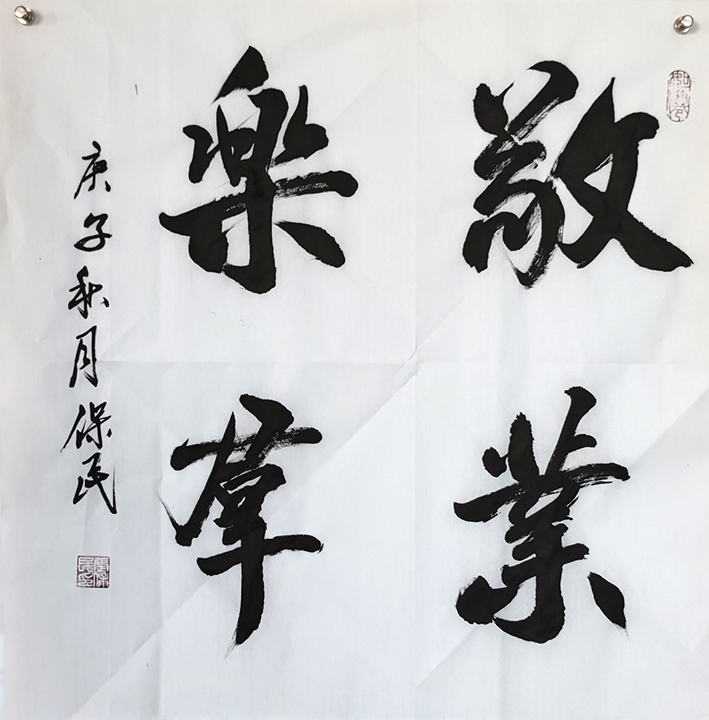 敬業
樂羣
庚子秋月保民